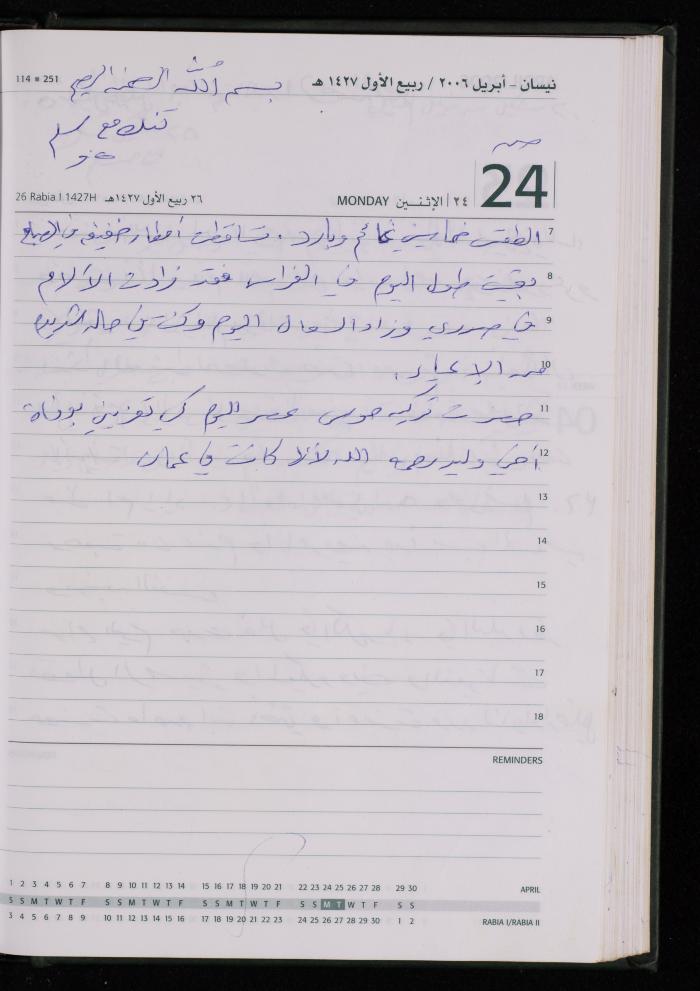 نيسان - أبريل ٢٠٠٦ / ربيع الأول ١٤٢٧ هـ
114 ▪ 251
بسم الله الرحمن الرحيم
24
٢٤ | الإثنـين MONDAY
٢٦ ربيع الأول ١٤٢٧هـ 26 Rabia I 1427H
7 الطقس خماسيني غائم وبارد. تساقطت أمطار خفيفة في الصباح
8 بقيت طول اليوم في الفراش فقد زادت الآلام
9 في صدري وزاد السعال اليوم وكنت في حالة شديدة
10 من الإعياء.
11 حضرت تركية عصر اليوم كي تعزيني بوفاة
12 أخي وليد رحمه الله لأنها كانت في عمان
13
14
15
16
17
18
REMINDERS
1 2 3 4 5 6 7 8 9 10 11 12 13 14 15 16 17 18 19 20 21 22 23 24 25 26 27 28 29 30 APRIL
S S M T W T F S S M T W T F S S M T W T F S S M T W T F S S
3 4 5 6 7 8 9 10 11 12 13 14 15 16 17 18 19 20 21 22 23 24 25 26 27 28 29 30 1 2 RABIA I/RABIA II